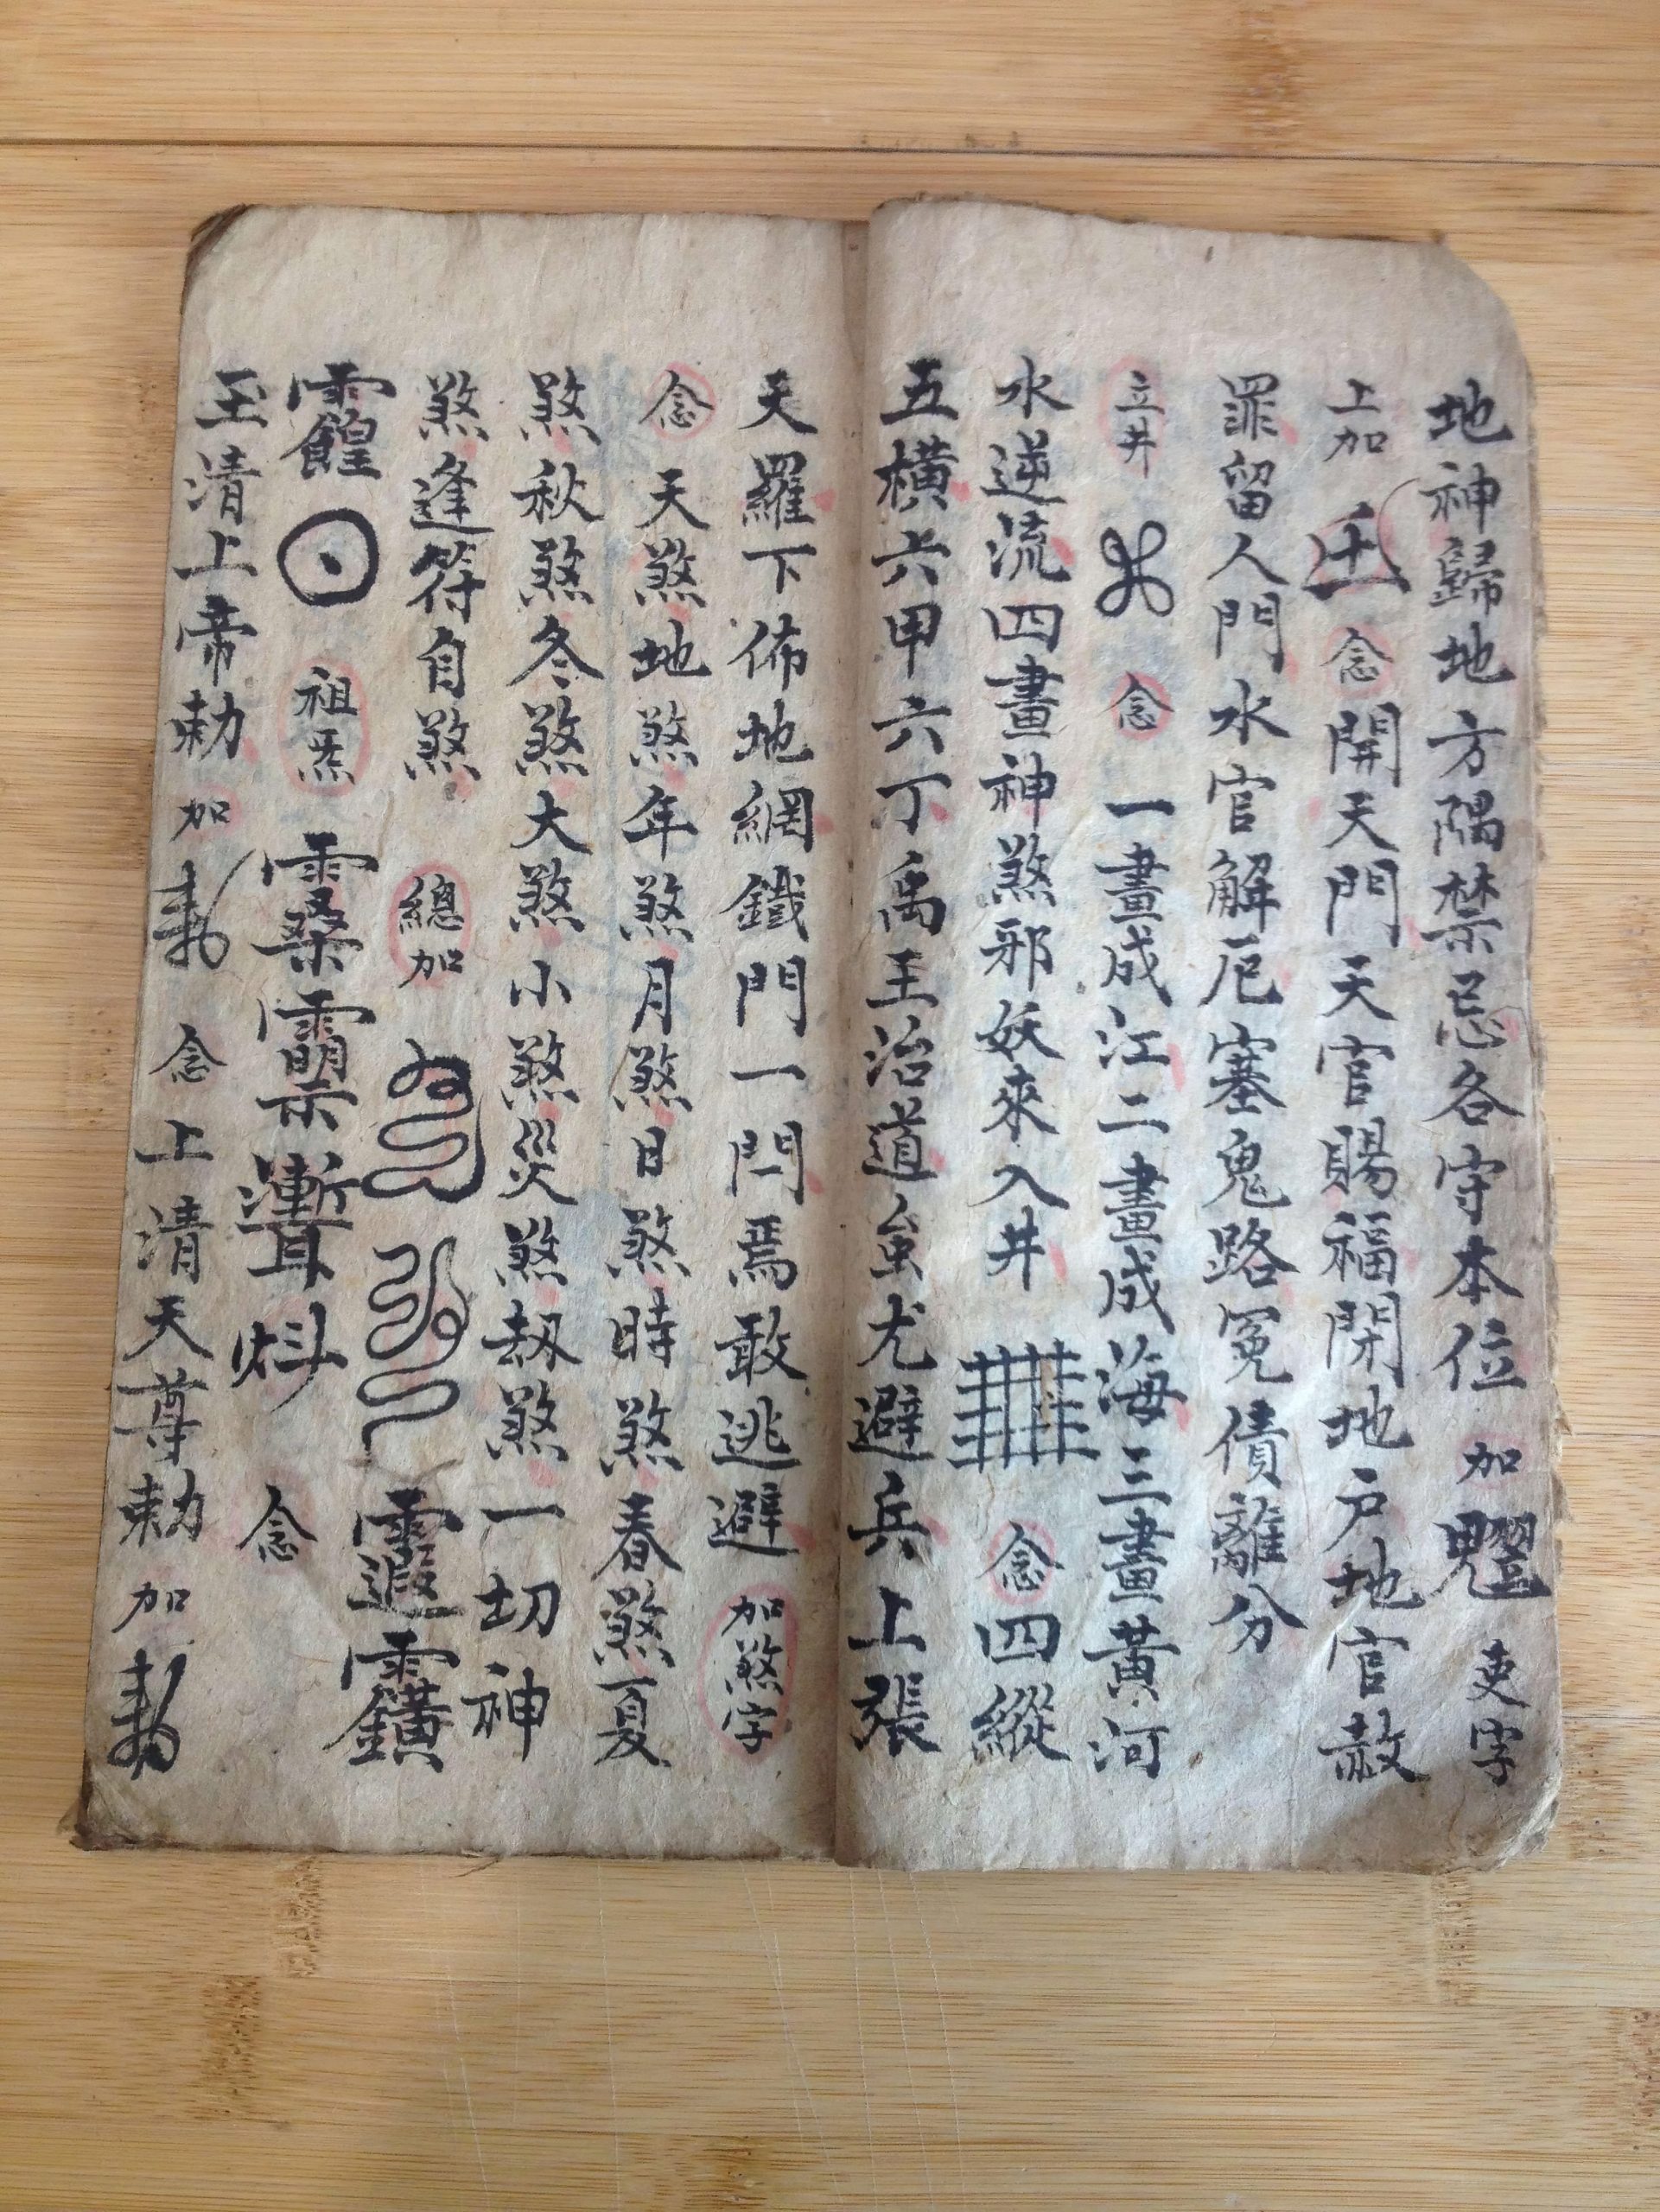 地神歸地方隅禁忌各守本位 加 吏字
上加 念 開天門天官賜福閉地户地官赦
罪留人門水官解厄塞鬼路冤債離分
立井 念 一畫成江二畫成海三畫黃河
水逆流四畫神煞邪妖來入井 念 四縱
五橫六甲六丁禹王治道蚩尤避兵上張
天羅下佈地網鐵門一閂焉敢逃避 加煞字
念 天煞地煞年煞月煞日煞時煞春煞夏
煞秋煞冬煞大煞小煞災煞劫煞一切神
煞逢符自煞 總加
祖炁 念
玉清上帝勅 加 念 上清天尊勅 加